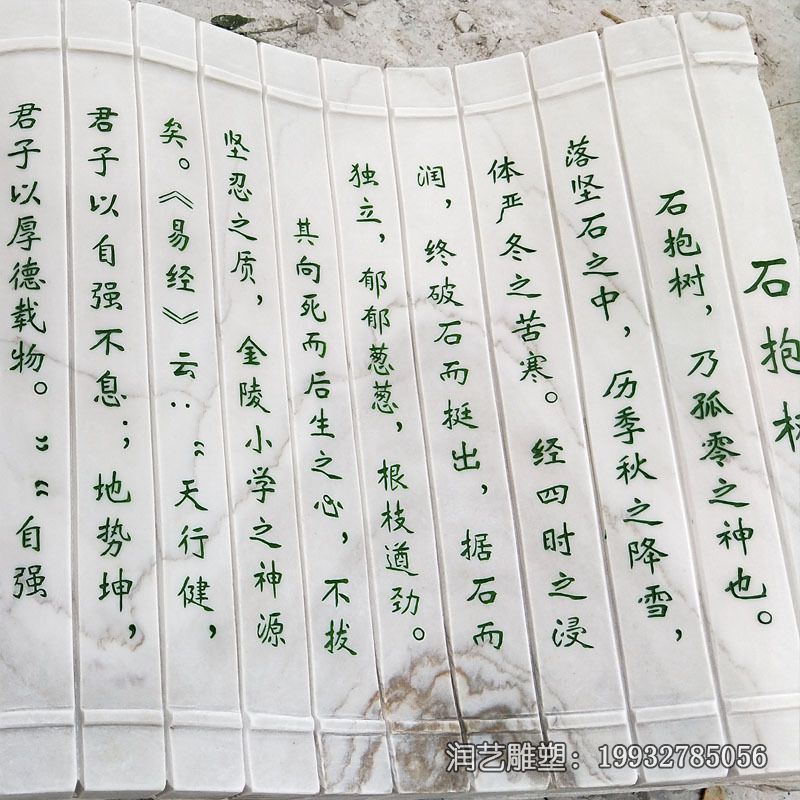 石抱
石抱树，乃孤零之神也。
落坚石之中，历季秋之降雪，
体严冬之苦寒。经四时之浸
润，终破石而挺出，据石而
独立，郁郁葱葱，根枝遒劲。
其向死而后生之心，不拔
坚忍之质，金陵小学之神源
矣。《易经》云：“天行健，
君子以自强不息；地势坤，
君子以厚德载物。”“自强
润艺雕塑：19932785056